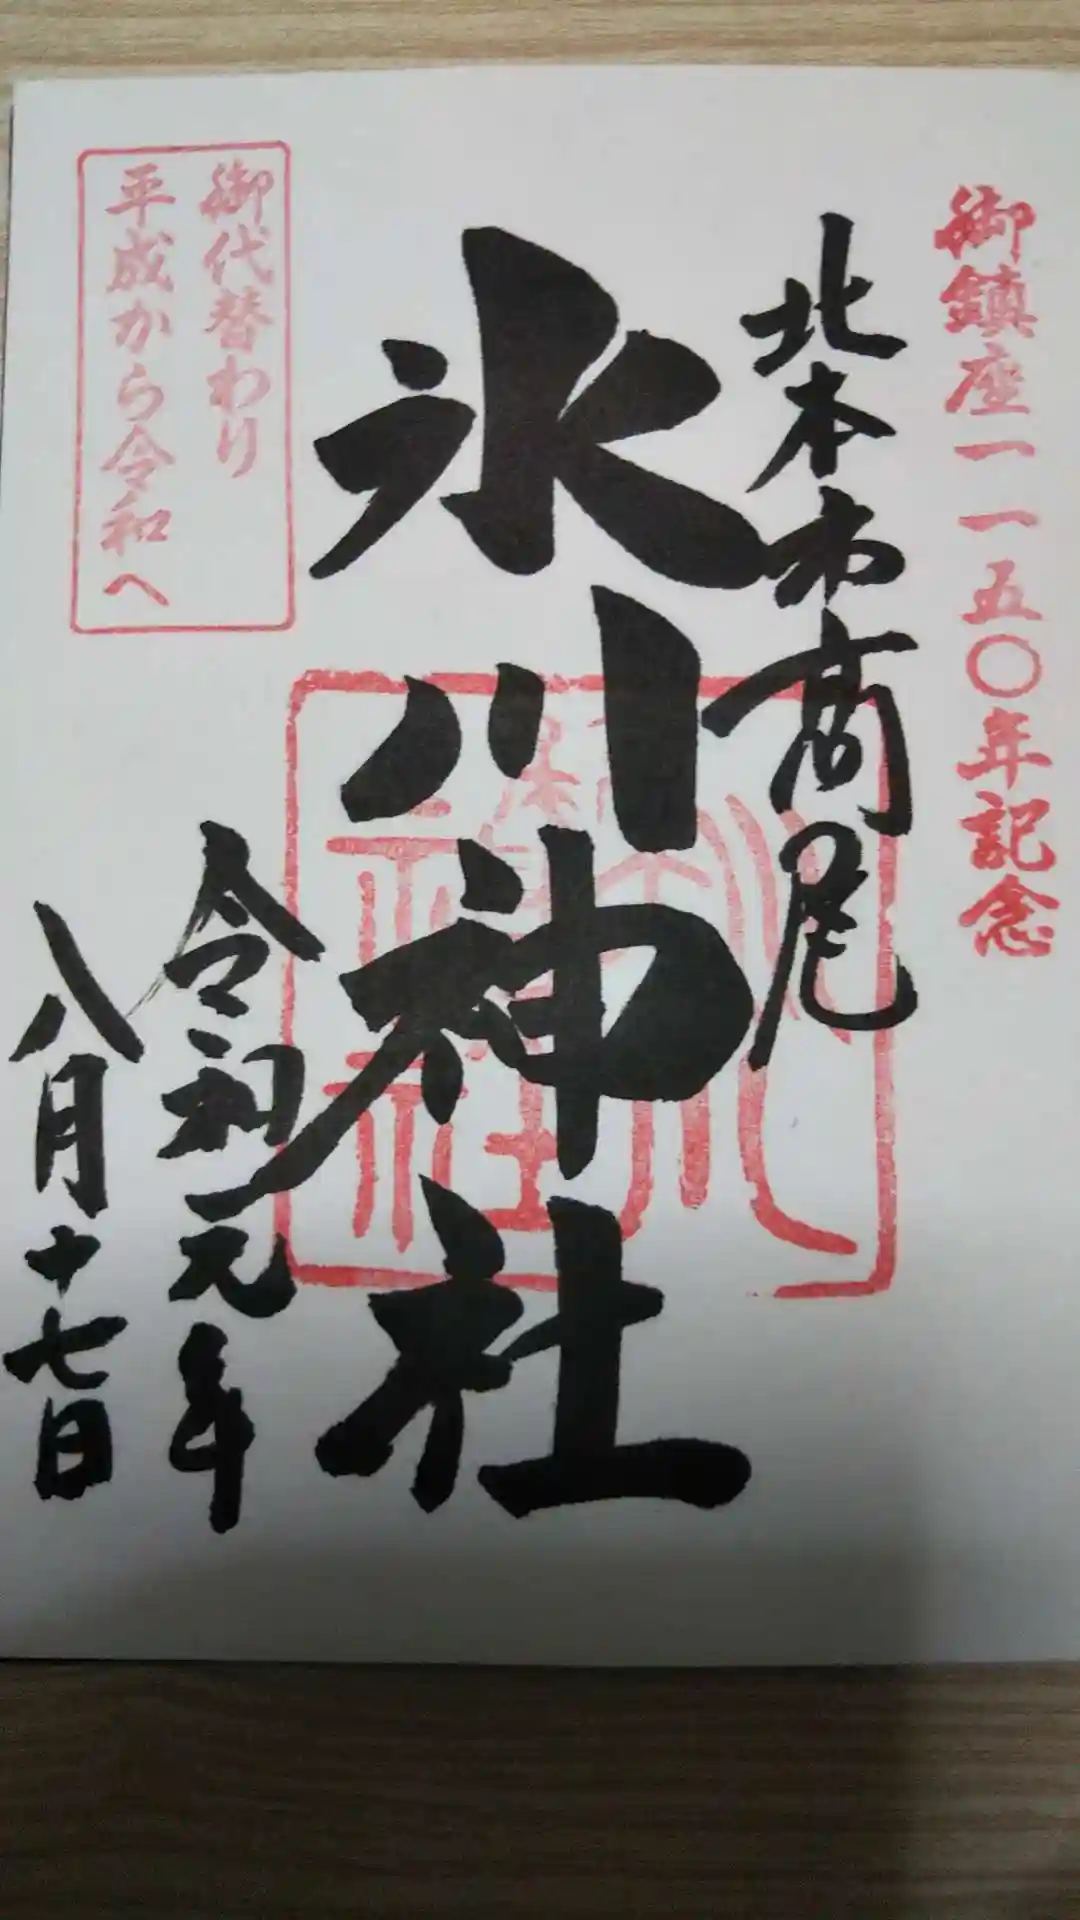 御鎮座一一五〇年記念
北本市高尾
氷川神社
御代替わり
平成から令和へ
令和元年
八月十七日